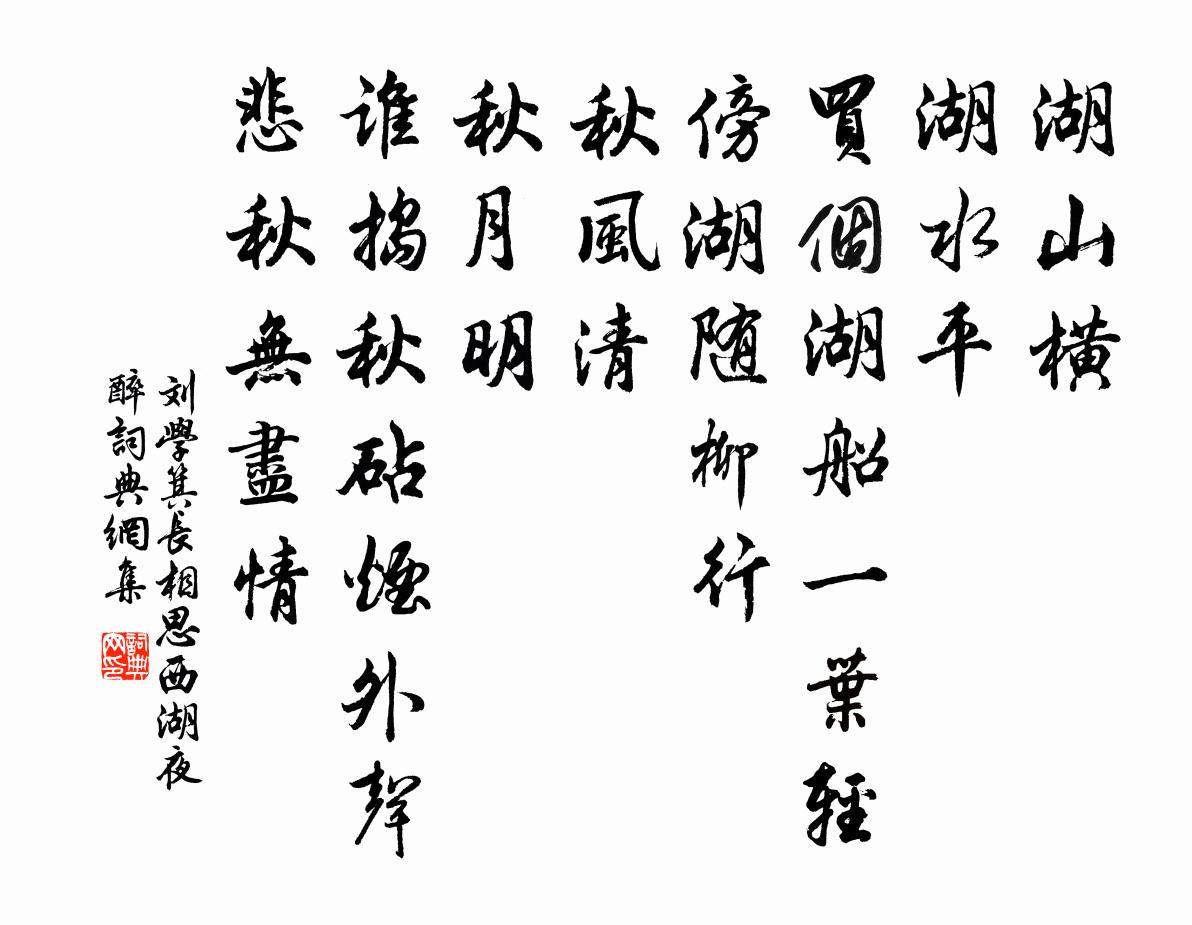 湖山橫
湖水平
買個湖船一葉輕
傍湖随柳行
秋風清
秋月明
谁搗秋砧煙外聲
悲秋無盡情
刘學箕長相思西湖夜
醉詞典網集
詞典
网印